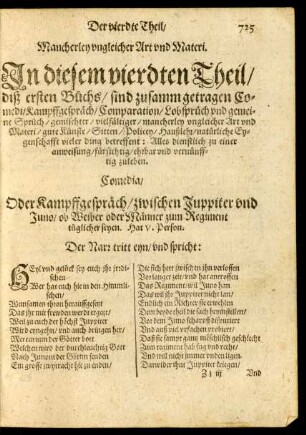 Der vierdte Theil/
725
Mancherley vngleicher Art vnd Materi.
In diesem vierdten Theil/
diß ersten Buchs/ sind zusamm getragen Co-
medi/ Kampffgespräch/ Comparation/ Lobsprüch vnd gemei-
ne Sprüch/ gemischter/ vielfältiger/ mancherley vngleicher Art vnd
Materi/ gute Künste/ Sitten/ Policey/ Haußleh/ natürliche Ey-
genschafft vieler ding betreffent: Alles dienstlich zu einer
anweisung/ fürsichtig/ ehrbar vnd vernünff-
tig zuleben.
Comedia/
Oder Kampffgespräch/ zwischen Juppiter vnd
Juno/ ob Weiber oder Männer zum Regiment
tüglicher seyen. Hat V. Person.
Der Narr tritt eyn/ vnd spricht:
HEyl vnd gelück sey euch jhr jrdi-
schen
Wer hat euch hie in den Himmli-
schen/
Wonsamen thron herauffgesent
Das jhr mir frembden werdt ergetzt/
Weil zu euch der höchst Juppiter
Wird eyngehn/ vnd auch bringen her/
Mercurium der Götter bott
Welchen wird der durchleuchtig Gott
Nach Junoni der Göttin senden
Ein grosse zwytracht hie zu enden/
Die sich herr zwischen jhn verloffen
Vor langer zeit/ vnd hat antroffen
Das Regiment/ wil Juno han
Das wil jhr Juppiter nicht lan/
Endlich ein Richter sie erwehlen
Dem beyde theil die sach heimstellen/
Vor dem Juno scharpff disputiert
Vnd auß viel vrsachen probiert/
Daß sie sampt gantz weiblichem geschlecht
Zum regiment hab fug vnd recht/
Vnd wil nicht immer vnden ligen.
Darwider thut Juppiter kriegen/
Zz iij
Vnd